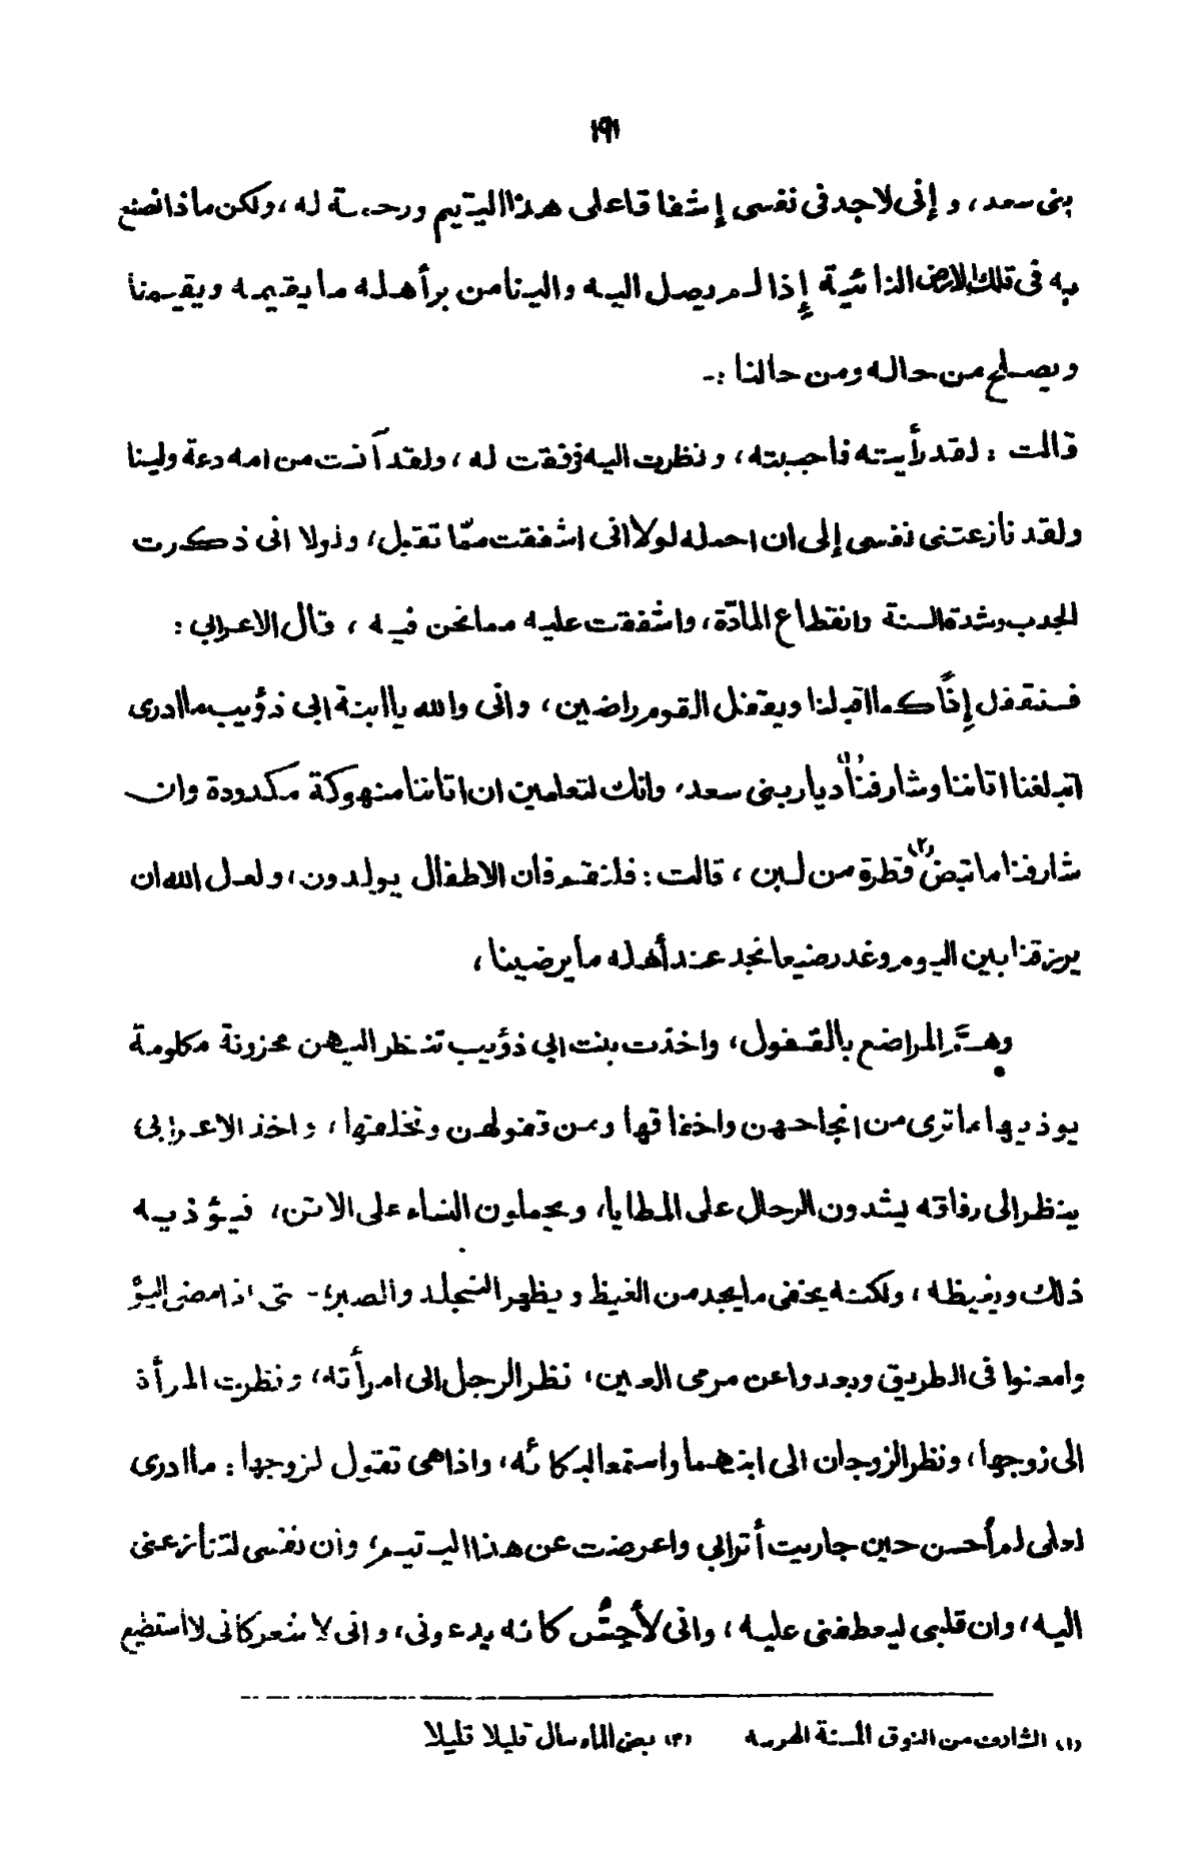 ١٩١
بنى سعد، و إنى لاجد فى نفسى إشفاقا على هذا اليتيم ورحمة له، ولكن ماذا نصنع
به فى تلك الارض النائية إذا لم يصل اليه والينا من برأهله ما يقيمه ويقيمنا
ويصلح من حاله ومن حالنا :-
قالت : لقد رأيته فاحببته، ونظرت اليه فرفقت له، ولقد آنست من امه دعة ولينا
ولقد نازعتنى نفسى إلى ان احمله لولا انى اشفقت ممّا تقبل، ولولا انى ذكرت
الجدب وشدة السنة وانقطاع المادّة، واشفقت عليه مما نحن فيه ، قال الاعرابي :
فسنقفل إذًا كما اقبلنا ويقفل القوم راضين، وانى والله يا ابنة ابي ذؤيب ما ادرى
اتبلغنا اتاننا وشارفنا(١) ديار بنى سعد، وانك لتعلمين ان اتاننا منهوكة مكدودة وان
شارفنا ما تبض(٢) قطرة من لبن ، قالت : فلنقم فان الاطفال يولدون، ولعل الله ان
يرزقنا بين اليوم وغد رضيعا نجد عند أهله ما يرضينا ،
وهمّ المراضع بالقفول، واخذت بنت ابي ذؤيب تنظر اليهن محزونة مكلومة
يوذيها ما ترى من انجاحهن واخفاقها ومن قفولهن وتخلفها، واخذ الاعرابي
ينظر الى رفاقه يشدون الرحال على المطايا، ويحملون النساء على الاتن، فيؤذيه
ذلك ويغيظه ، ولكنه يخفى ما يجد من الغيظ ويظهر التجلد والصبر، حتى اذا مضى اليؤ
وامعنوا فى الطريق وبعدوا عن مرمى العين، نظر الرجل الى امرأته، ونظرت المرأة
الى زوجها، ونظر الزوجان الى ابنهما واستمعا لبكائه، واذا هى تقول لزوجها : ما ادرى
لعلى لم أحسن حين جاريت أترابي واعرضت عن هذا اليتيم، وان نفسى لتنازعنى
اليه، وان قلبى ليعطفنى عليه ، وانى لأحِسُّ كانه يدعونى، وانى لا شعر كانى لا استطيع
(١) الشارف من النوق المسنة الهرمة (٢) بض الماء سال قليلا قليلا